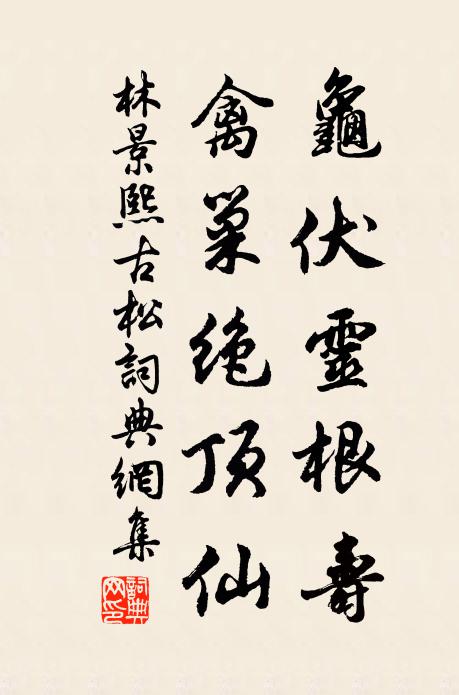 龜伏靈根壽
禽巢絶頂仙
林景熙古松詞典網集
詞典網印